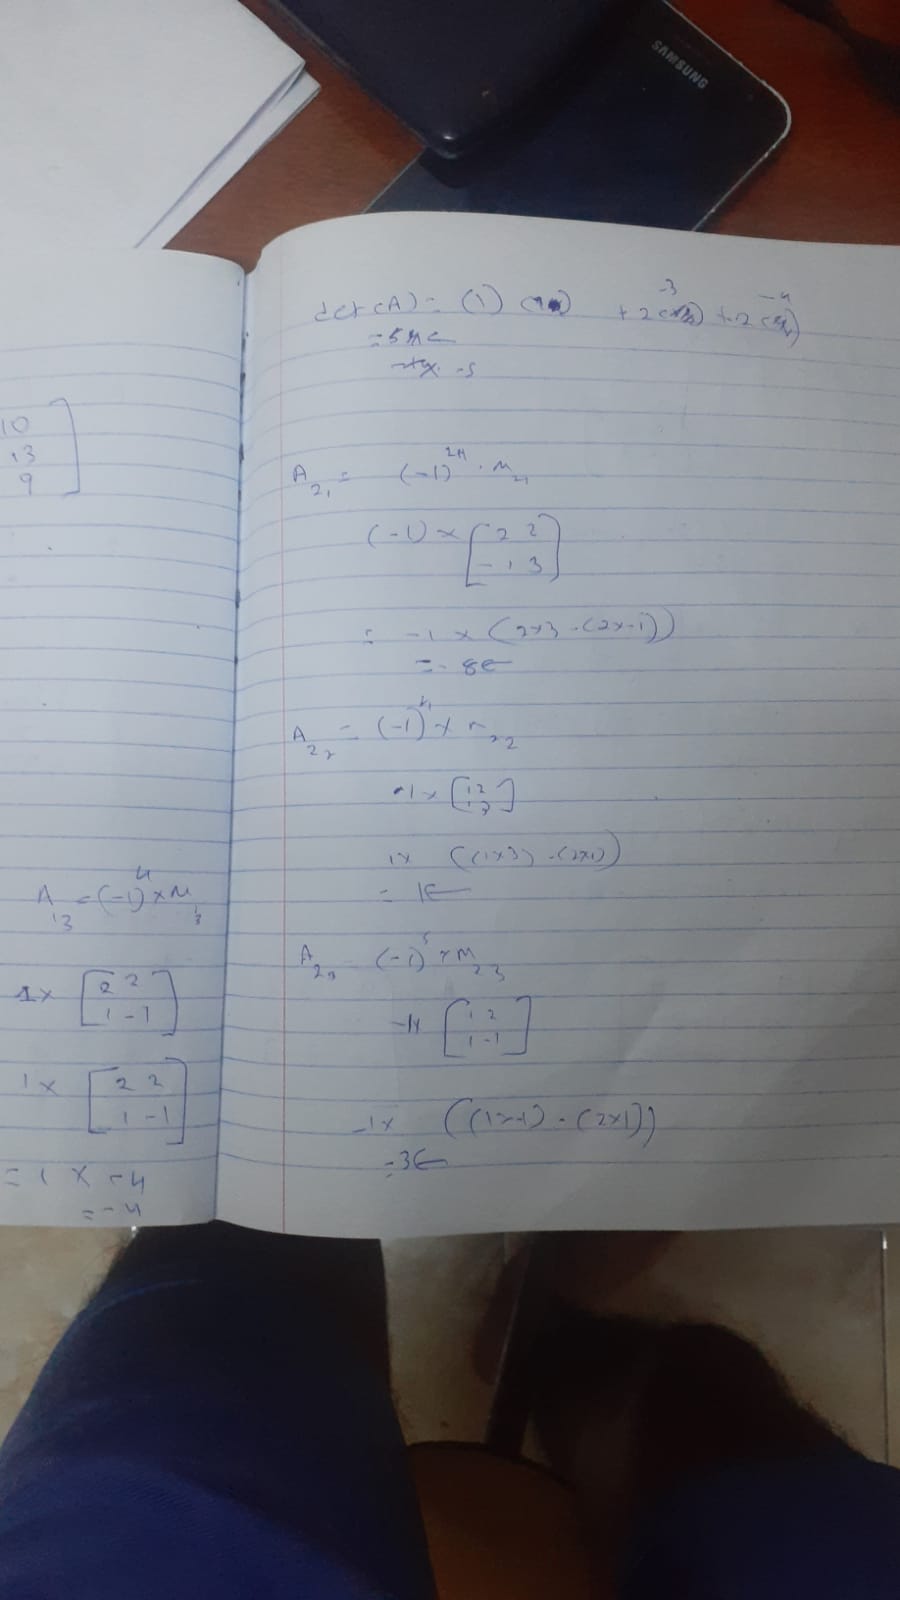 SAMSUNG
10
13
9
A13 = (-1)^4 × M13
1× [2 2
1 -1]
1× [2 2
1 -1]
= 1 × -4
= -4
det(A) = (1) +2(-3) +2(-4)
-5
A21 = (-1)^2+1 . M21
(-1) × [2 2
-1 3]
= -1 × (2×3 - (2×-1))
= -8
A22 = (-1)^4 × M22
1× [1 2
1 3]
1× ((1×3) - (2×1))
= 1
A23 = (-1)^5 × M23
-1× [1 2
1 -1]
-1× ((1×-1) - (2×1))
= 3